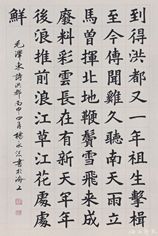 到得洪都又一年祖生擊楫
至今傳聞雞久聽南天雨立
馬曾揮北地鞭鬢雪飛來成
廢料彩雲長在有新天年年
後浪推前浪江草江花處處
鮮
毛澤東詩洪都丙申四月楊永書於海上